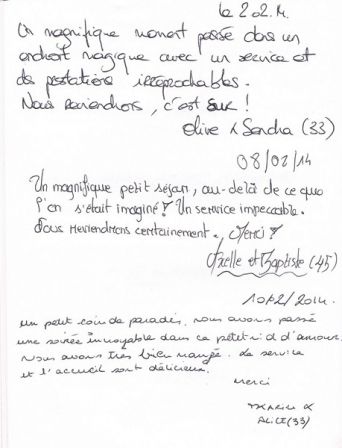 le 2.02.14
Un magnifique moment passé dans un
endroit magique avec un service et
des prestations irréprochables.
Nous reviendrons, c'est sur !
Olive & Sandra (33)
08/02/14
Un magnifique petit séjour, au-delà de ce que
l'on s'était imaginé ! Un service impeccable.
Nous reviendrons certainement. Merci !
Axelle et Baptiste (45)
10/2/2014.
un petit coin de paradis, nous avons passé
une soirée incroyable dans ce petit nid d'amour.
Nous avons très bien mangé. Le service
et l'accueil sont délicieux.
Merci
&
ALICE (33)